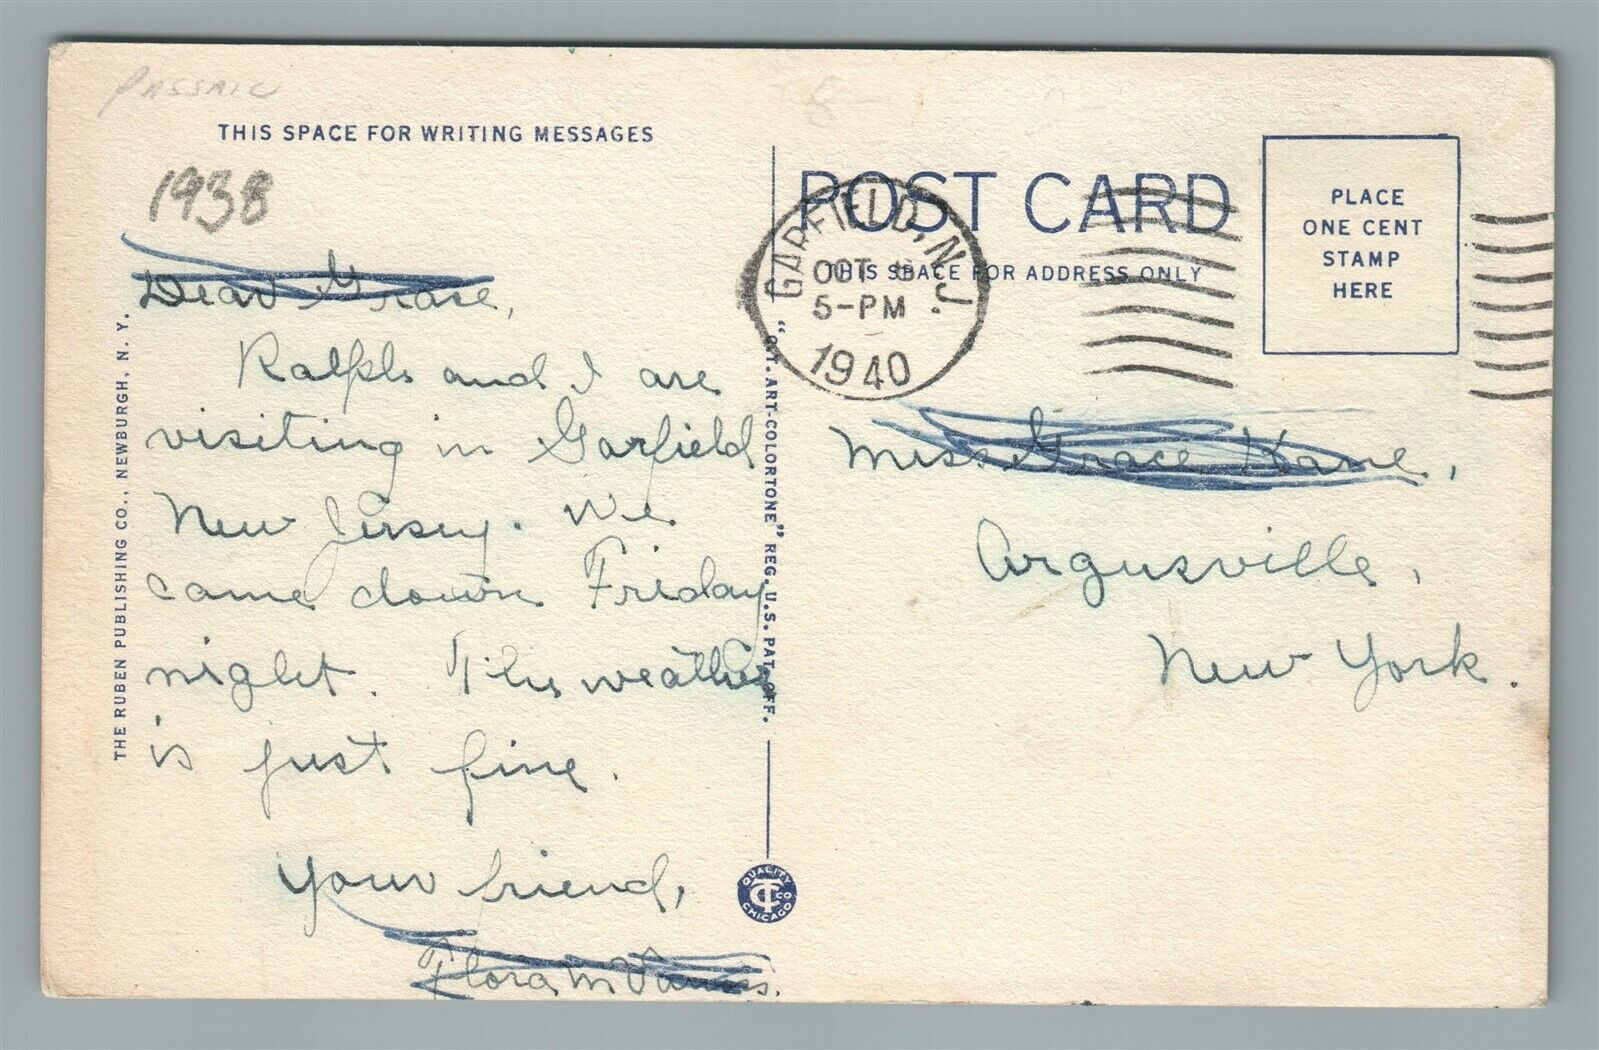 PASSAIC
THIS SPACE FOR WRITING MESSAGES
1938
Dear Grace,
Ralph and I are
visiting in Garfield
New Jersey. We
came down Friday
night. The weather
is just fine.
Your friend,
Flora M
THE RUBEN PUBLISHING CO., NEWBURGH, N. Y.
"C.T. ART-COLORTONE" REG. U.S. PAT. OFF.
QUALITY
CT CO
CHICAGO
POST CARD
THIS SPACE FOR ADDRESS ONLY
GARFIELD, N.J.
OCT
5-PM
1940
PLACE
ONE CENT
STAMP
HERE
Miss Grace Kane,
Argusville,
New York.